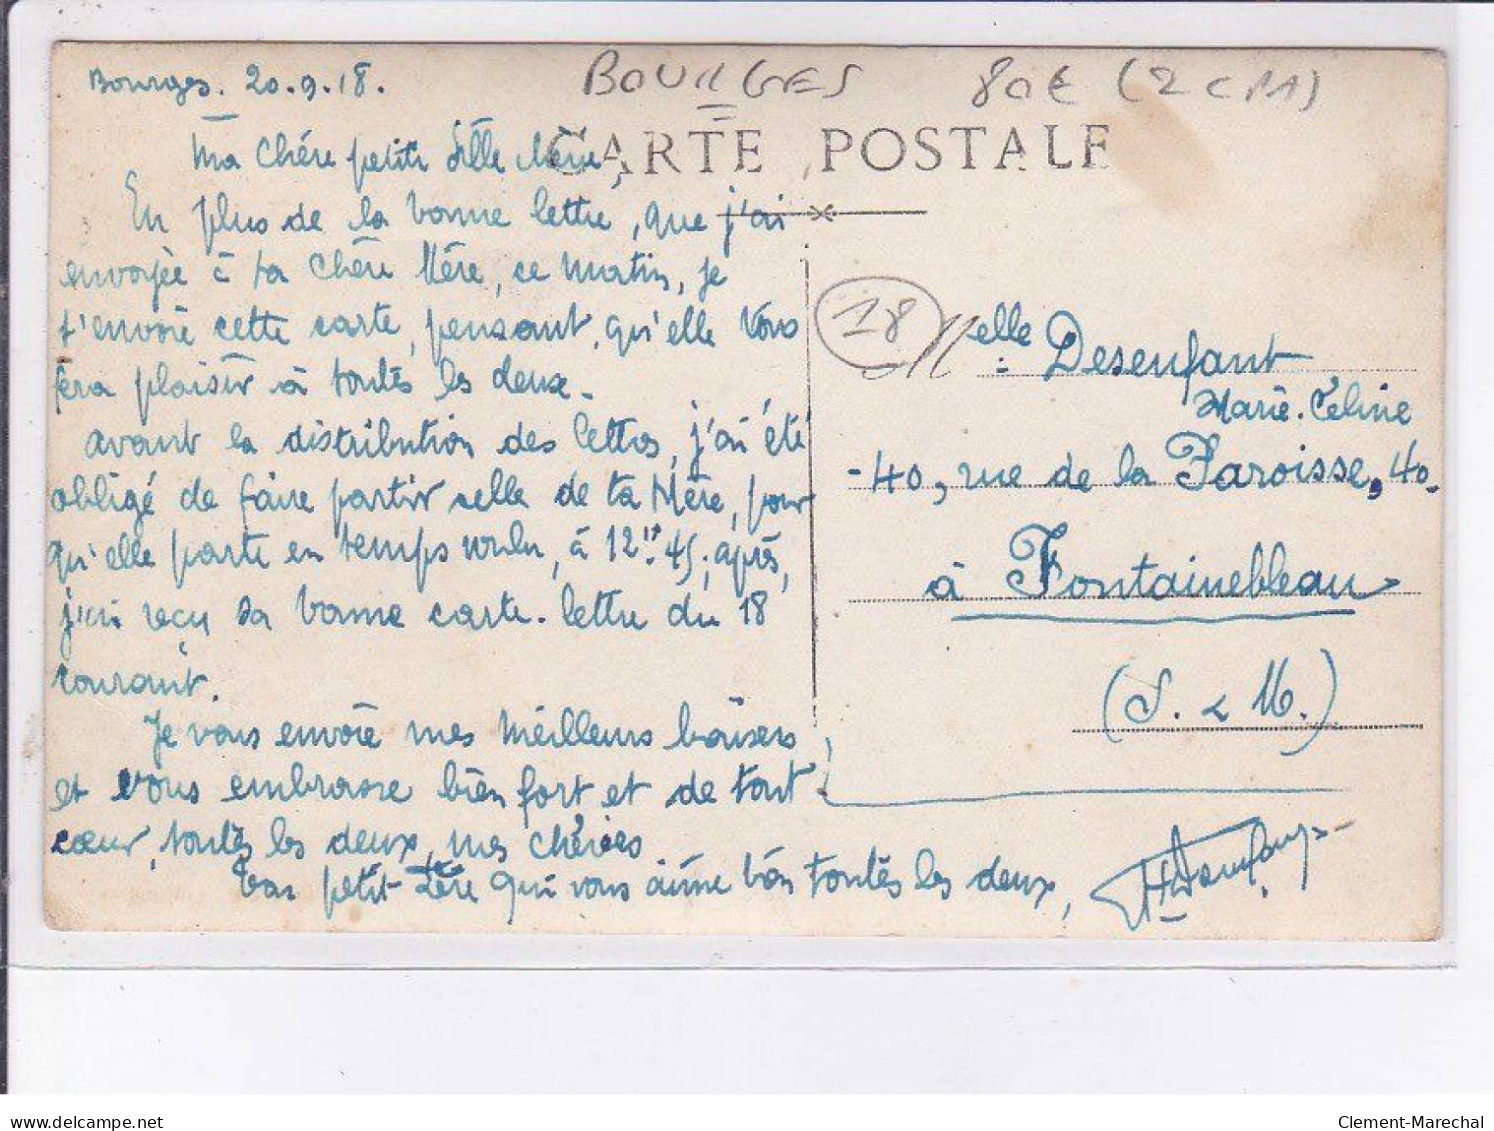 BOURGES 80€ (2 CPA)
CARTE POSTALE
Bourges. 20.9.18.
Ma Chére petite Fille Mérie,
En plus de la bonne lettre, que j'ai
envoyée à ta Chére Mére, ce matin, je
t'envoie cette carte, pensant, qu'elle vous
fera plaisir à toutes les deux.
Avant la distribution des lettres, j'ai été
obligé de faire partir celle de ta Mère, pour
qu'elle parte en temps voulu, à 12h.45; après,
j'ai reçu sa bonne carte-lettre du 18
courant.
Je vous envoie mes meilleurs baisers
et vous embrasse bien fort et de tout
cœur, toutes les deux, mes chéries
Ton petit Père qui vous aime bien toutes les deux,
18
Melle Desenfant
Marie-Céline
-40, rue de la Paroisse, 40-
à Fontainebleau
(S. & M.)
delcampe.net
Clement-Marechal